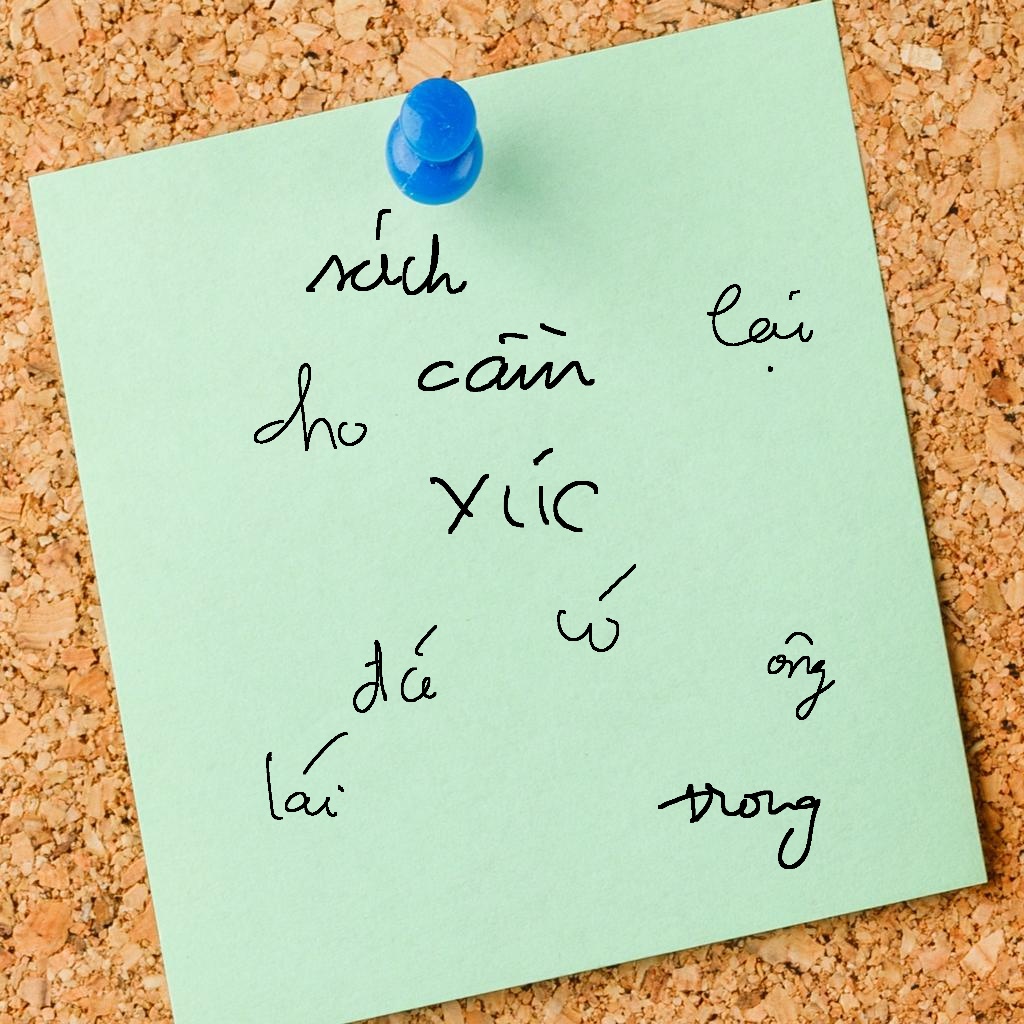 sách
lại
cần
cho
xúc
có
đá
ông
lái
trong